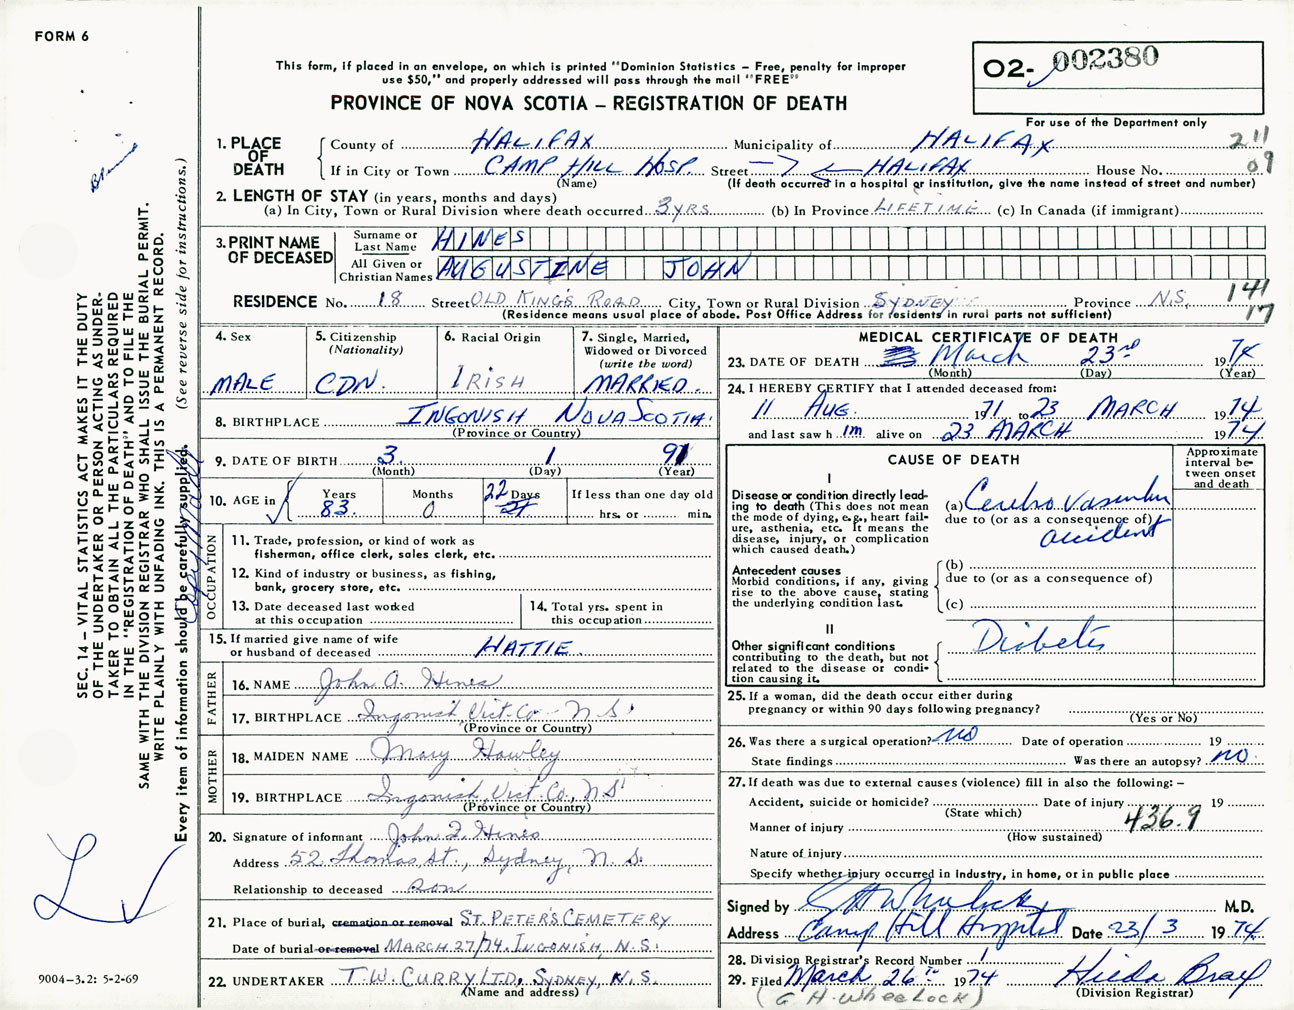 FORM 6
O2- 002380
This form, if placed in an envelope, on which is printed "Dominion Statistics – Free, penalty for improper
use $50," and properly addressed will pass through the mail "FREE"
PROVINCE OF NOVA SCOTIA – REGISTRATION OF DEATH
For use of the Department only
1. PLACE OF DEATH
County of HALIFAX Municipality of HALIFAX 211
If in City or Town CAMP HILL HOSP. Street HALIFAX House No. 09
(Name) (If death occurred in a hospital or institution, give the name instead of street and number)
2. LENGTH OF STAY (in years, months and days)
(a) In City, Town or Rural Division where death occurred 3 YRS (b) In Province LIFETIME (c) In Canada (if immigrant)
3. PRINT NAME OF DECEASED
Surname or Last Name HINES
All Given or Christian Names AUGUSTINE JOHN
RESIDENCE No. 18 Street OLD KING'S ROAD City, Town or Rural Division SYDNEY Province N.S. 141
(Residence means usual place of abode. Post Office Address for residents in rural parts not sufficient) 17
4. Sex
MALE
5. Citizenship
(Nationality)
CDN.
6. Racial Origin
IRISH
7. Single, Married,
Widowed or Divorced
(write the word)
MARRIED.
8. BIRTHPLACE INGONISH NOVA SCOTIA.
(Province or Country)
9. DATE OF BIRTH 3. 1 91
(Month) (Day) (Year)
10. AGE in
Years 83.
Months 0
22 Days
If less than one day old
hrs. or min.
OCCUPATION
11. Trade, profession, or kind of work as
fisherman, office clerk, sales clerk, etc.
12. Kind of industry or business, as fishing,
bank, grocery store, etc.
13. Date deceased last worked
at this occupation
14. Total yrs. spent in
this occupation
15. If married give name of wife
or husband of deceased HATTIE.
FATHER
16. NAME John A. Hines
17. BIRTHPLACE Ingonish Vict. Co. N.S.
(Province or Country)
MOTHER
18. MAIDEN NAME Mary Hawley
19. BIRTHPLACE Ingonish, Vict. Co., N.S.
(Province or Country)
20. Signature of informant John F. Hines
Address 52 Thomas St., Sydney, N. S.
Relationship to deceased son
21. Place of burial, cremation or removal ST. PETER'S CEMETERY
Date of burial or removal MARCH 27/74. INGONISH, N.S.
22. UNDERTAKER T.W. CURRY LTD, SYDNEY, N.S.
(Name and address)
MEDICAL CERTIFICATE OF DEATH
23. DATE OF DEATH March 23rd 1974
(Month) (Day) (Year)
24. I HEREBY CERTIFY that I attended deceased from:
11 AUG. 1971 to 23 MARCH 1974
and last saw him alive on 23 MARCH 1974
CAUSE OF DEATH
Approximate
interval be-
tween onset
and death
I
Disease or condition directly lead-
ing to death (This does not mean
the mode of dying, e.g., heart fail-
ure, asthenia, etc. It means the
disease, injury, or complication
which caused death.)
(a) Cerebro Vascular
due to (or as a consequence of)
accident
Antecedent causes
Morbid conditions, if any, giving
rise to the above cause, stating
the underlying condition last.
(b)
due to (or as a consequence of)
(c)
II
Other significant conditions
contributing to the death, but not
related to the disease or condi-
tion causing it.
Diabetes
25. If a woman, did the death occur either during
pregnancy or within 90 days following pregnancy?
(Yes or No)
26. Was there a surgical operation? no Date of operation 19
State findings Was there an autopsy? no.
27. If death was due to external causes (violence) fill in also the following: –
Accident, suicide or homicide? Date of injury 19
(State which)
Manner of injury 436.9
(How sustained)
Nature of injury
Specify whether injury occurred in industry, in home, or in public place
Signed by G H Wheelock M.D.
Address Camp Hill Hospital Date 23/3 1974
28. Division Registrar's Record Number 1
29. Filed March 26th 1974 Hilda Bray
(G. H. Wheelock) (Division Registrar)
SEC. 14 – VITAL STATISTICS ACT MAKES IT THE DUTY
OF THE UNDERTAKER OR PERSON ACTING AS UNDER-
TAKER TO OBTAIN ALL THE PARTICULARS REQUIRED
IN THE "REGISTRATION OF DEATH" AND TO FILE THE
SAME WITH THE DIVISION REGISTRAR WHO SHALL ISSUE THE BURIAL PERMIT.
WRITE PLAINLY WITH UNFADING INK. THIS IS A PERMANENT RECORD.
Every item of information should be carefully supplied. (See reverse side for instructions.)
9004–3.2: 5-2-69